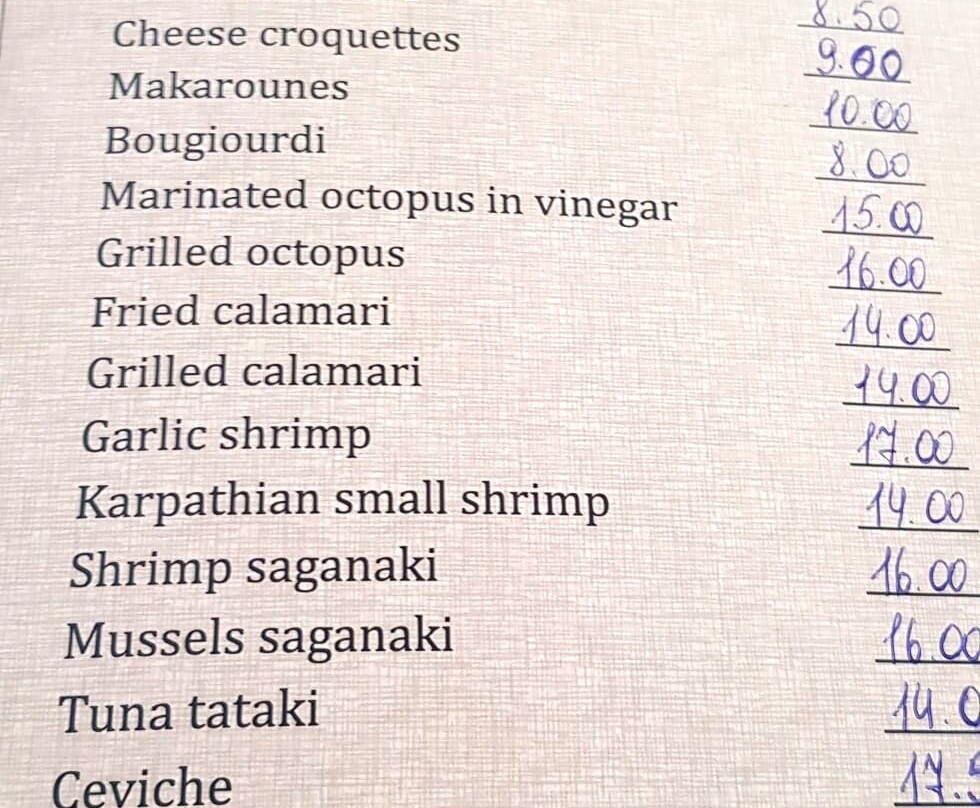 8.50
Cheese croquettes 9.00
Makarounes 10.00
Bougiourdi 8.00
Marinated octopus in vinegar 15.00
Grilled octopus 16.00
Fried calamari 14.00
Grilled calamari 14.00
Garlic shrimp 17.00
Karpathian small shrimp 14.00
Shrimp saganaki 16.00
Mussels saganaki 16.00
Tuna tataki 14.0
Ceviche 17.5